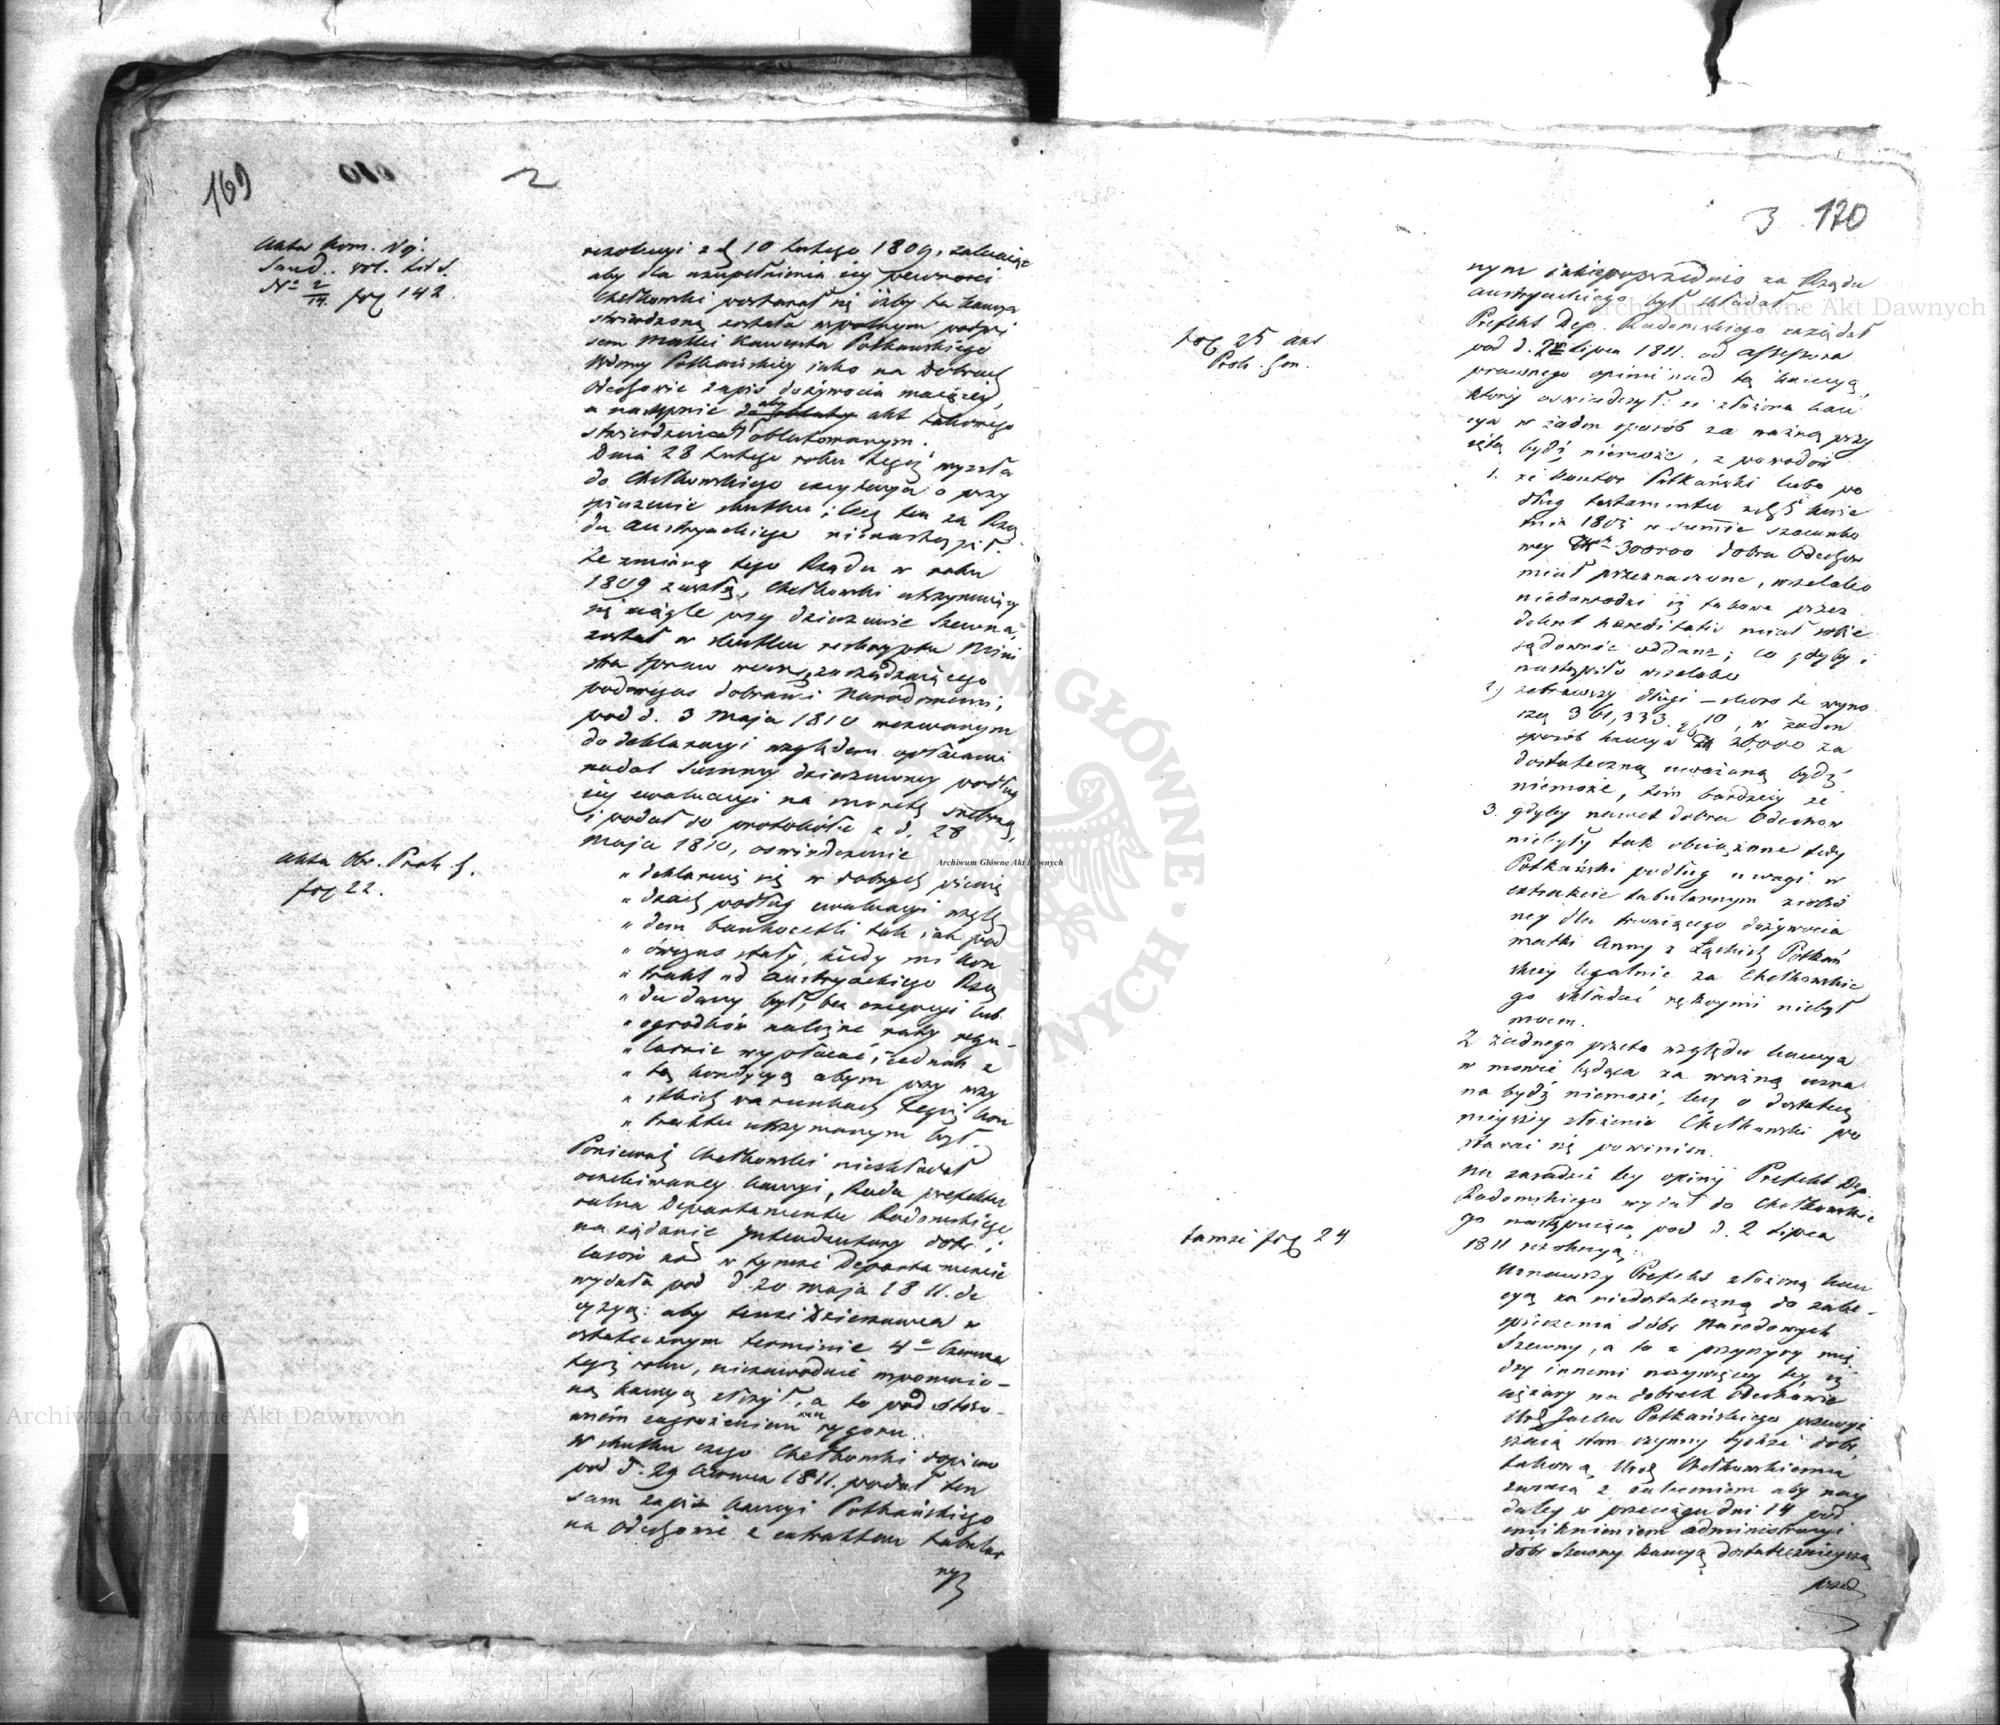 169
2
Akta Kom. Woj.
Sand. vol. Lit S.
No 2/14. fol 142.
rezolucyi z d 10 Lutego 1809, zalecając
aby dla uzupełnienia iey pewności
Chełkowski postarał się iżby ta kaucya
stwierdzoną została wspólnym podpi
sem Matki Kawenta Potkańskiego
Wdowy Potkańskiey iako na Dobrach
Odechowie zapis dożywocia maiącey,
a następnie aby akt takowego
stwierdzenia był oblatowanym.
Dnia 28 Lutego roku tegoż wyszła
do Chełkowskiego excytacya o przy
spieszenie skutku; lecz ten za Rzą
du Austryackiego nienastąpił.
Ze zmianą tego Rządu w roku
1809 zaszłą, Chełkowski utrzymuiący
się ciągle przy dzierzawie Szewna,
został w skutku reskryptu Mini
stra Spraw wewn, zarządzaiącego
podówczas dobrami Narodowemi,
pod d. 3 Maja 1810 wezwanym
do deklaracyi względem opłacania
nadal Summy dzierzawney podług
iey ewaluacyi na monetę srebrną,
i podał do protokółu z d. 28
Maja 1810, oswiadczenie
Akta Obr. Prok. J.
fol 22.
" deklaruię się w dobrych pienią
" dzach podług ewaluacyi wzglę
" dem bankocetli tak iak pod
" ówczas stały, kiedy mi kon
" trakt od Austryackiego Rzą
" du dany był, bez excepcyi lub
" ogródków należne raty regu-
" larnie wypłacać, iednak z
" tą kondycyą abym przy wszy
" stkich warunkach tegoż kon
" traktu utrzymanym był.
Ponieważ Chełkowski nieskładał
oczekiwaney kaucyi, Rada prefektu
ralna Departamentu Radomskiego
na żądanie Intendentury dóbr i
lasów nad w tymże Departamencie
wydała pod d. 20 maja 1811. de
cyzyą: aby tenże Dzierzawca w
ostatecznym terminie 4o Czerwca
tegoż roku, niezawodnie wspomnio-
ną kaucyą złożył, a to pod stoso-
wnem zagrożeniem rygoru.
W skutku czego Chełkowski dopiero
pod d. 29 Czerwca 1811. podał ten
sam zapis kaucyi Potkańskiego
na Odechowie z extraktem tabular
nym
3 170
nym iaki poprzednio za Rządu
Austryackiego był składał.
fol 25 akt
Prok. Gen.
Prefekt Dep. Radomskiego zażądał
pod d. 2 Lipca 1811. od Assessora
prawnego opinii nad tą kaucyą,
który oswiadczył: że złożona kau
cya w żaden sposób za ważną przy
iętą bydź niemoże, z powodów
1. że kawent Potkański lubo po
dług testamentu z d 5 Kwie
tnia 1803 w summie szacunko
wey 300000 dobra Odechow
miał przeznaczone, wszelako
niedowodzi iż takowe przez
dekret hereditatis miał sobie
sądownie oddane; co gdyby i
nastąpiło wszelako
2, zebrawszy długi – skoro te wyno
szą 361,333. g 10, w żaden
sposób kaucya 26,000 za
dostateczną uważaną bydź
niemoże, tem bardziey że
3. gdyby nawet dobra Odechow
niebyły tak obciążone tedy
Potkański podług uwagi w
extrakcie tabularnym zrobio
ney dla trwaiącego dożywocia
matki Anny z Łąckich Potkań
skiey legalnie za Chełkowskie
go składać rękoymi niebył
mocen.
Z żadnego przeto względu kaucya
w mowie będąca za ważną uzna
na bydź niemoże, lecz o dostatecz
nieyszey złożenie Chełkowski po
starać się powinien.
Na zasadzie tey opinij Prefekt Dep.
Radomskiego wydał do Chełkowskie
tamże fol 24
go następuiącą pod d. 2 Lipca
1811 rezolucyą:
Uznawszy Prefekt złożoną kau
cyą za niedostateczną do zabez-
pieczenia dóbr Narodowych
Szewny, a to z przyczyny mię
dzy innemi naywięcey tey iż
ciężary na dobrach Odechowie
Ur. Jacka Potkańskiego przewyż
szaią stan czynny tychże dóbr
takową Ur. Chełkowskiemu
zwraca z zaleceniem aby nay
daley w przeciągu dni 14 pod
uniknieniem administracyi
dóbr Szewny kaucyą dostatecznieyszą
przed
Archiwum Główne Akt Dawnych
Archiwum Główne Akt Dawnych
Archiwum Główne Akt Dawnych